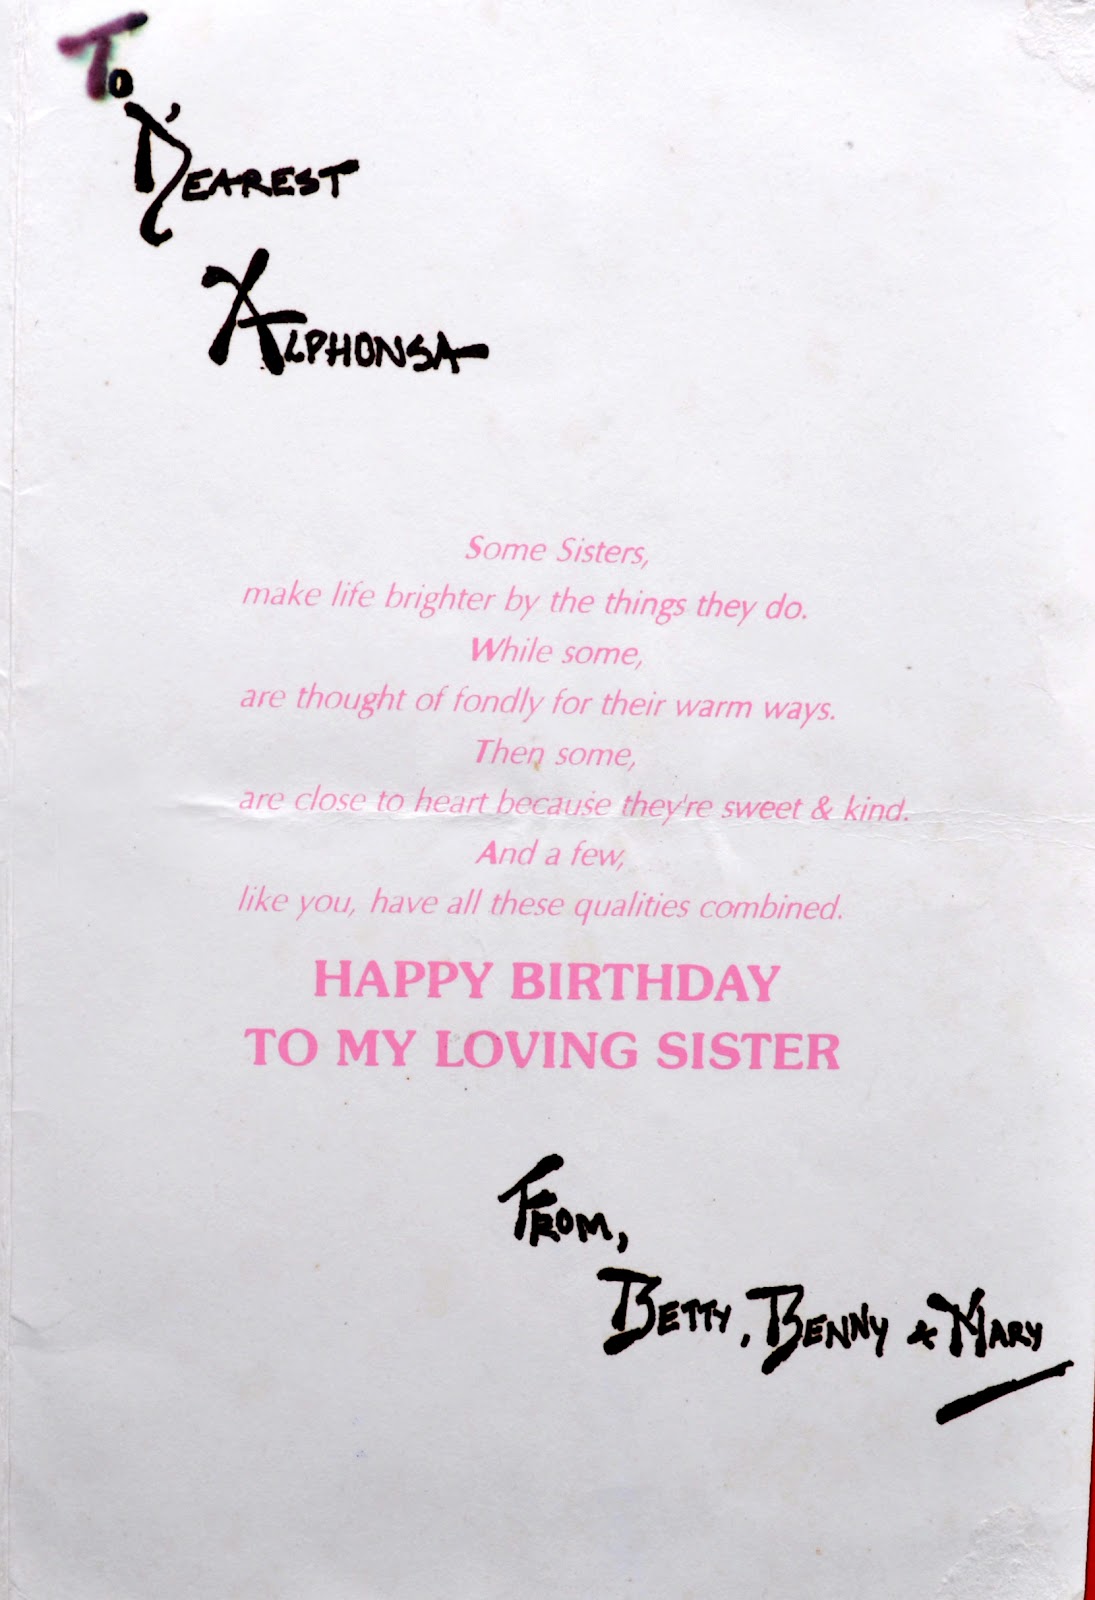 To
Dearest
Alphonsa
Some Sisters,
make life brighter by the things they do.
While some,
are thought of fondly for their warm ways.
Then some,
are close to heart because they're sweet & kind.
And a few,
like you, have all these qualities combined.
HAPPY BIRTHDAY
TO MY LOVING SISTER
From,
Betty, Benny & Mary